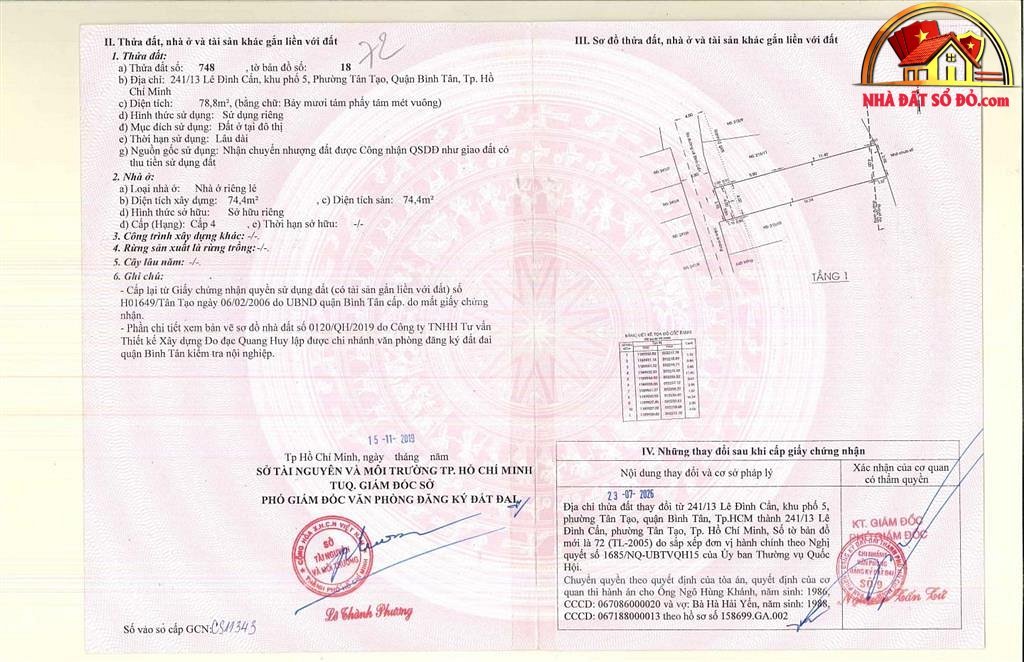 II. Thửa đất, nhà ở và tài sản khác gắn liền với đất
72
1. Thửa đất:
a) Thửa đất số: 748 , tờ bản đồ số: 18
b) Địa chỉ: 241/13 Lê Đình Cẩn, khu phố 5, Phường Tân Tạo, Quận Bình Tân, Tp. Hồ
Chí Minh
c) Diện tích: 78,8m², (bằng chữ: Bảy mươi tám phẩy tám mét vuông)
d) Hình thức sử dụng: Sử dụng riêng
đ) Mục đích sử dụng: Đất ở tại đô thị
e) Thời hạn sử dụng: Lâu dài
g) Nguồn gốc sử dụng: Nhận chuyển nhượng đất được Công nhận QSDĐ như giao đất có
thu tiền sử dụng đất
2. Nhà ở:
a) Loại nhà ở: Nhà ở riêng lẻ
b) Diện tích xây dựng: 74,4m² , c) Diện tích sàn: 74,4m²
d) Hình thức sở hữu: Sở hữu riêng
đ) Cấp (Hạng): Cấp 4 , e) Thời hạn sở hữu: -/-
3. Công trình xây dựng khác: -/-
4. Rừng sản xuất là rừng trồng: -/-
5. Cây lâu năm: -/-
6. Ghi chú:
- Cấp lại từ Giấy chứng nhận quyền sử dụng đất (có tài sản gắn liền với đất) số
H01649/Tân Tạo ngày 06/02/2006 do UBND quận Bình Tân cấp. do mất giấy chứng
nhận.
- Phần chi tiết xem bản vẽ sơ đồ nhà đất số 0120/QH/2019 do Công ty TNHH Tư vấn
Thiết kế Xây dựng Đo đạc Quang Huy lập được chi nhánh văn phòng đăng ký đất đai
quận Bình Tân kiểm tra nội nghiệp.
15-11-2019
Tp Hồ Chí Minh, ngày tháng năm
SỞ TÀI NGUYÊN VÀ MÔI TRƯỜNG TP. HỒ CHÍ MINH
TUQ. GIÁM ĐỐC SỞ
PHÓ GIÁM ĐỐC VĂN PHÒNG ĐĂNG KÝ ĐẤT ĐAI
SỞ
TÀI NGUYÊN
VÀ MÔI TRƯỜNG
Lê Thành Phương
Số vào sổ cấp GCN: CS11343
III. Sơ đồ thửa đất, nhà ở và tài sản khác gắn liền với đất
NHÀ ĐẤT SỔ ĐỎ.com
TẦNG 1
IV. Những thay đổi sau khi cấp giấy chứng nhận
Nội dung thay đổi và cơ sở pháp lý
Xác nhận của cơ quan
có thẩm quyền
23-07-2026
Địa chỉ thửa đất thay đổi từ 241/13 Lê Đình Cẩn, khu phố 5,
phường Tân Tạo, quận Bình Tân, Tp.HCM thành 241/13 Lê
Đình Cẩn, phường Tân Tạo, Tp. Hồ Chí Minh, Số tờ bản đồ
mới là 72 (TL-2005) do sắp xếp đơn vị hành chính theo Nghị
quyết số 1685/NQ-UBTVQH15 của Ủy ban Thường vụ Quốc
Hội.
Chuyển quyền theo quyết định của tòa án, quyết định của cơ
quan thi hành án cho Ông Ngô Hùng Khánh, năm sinh: 1986,
CCCD: 067086000020 và vợ: Bà Hà Hải Yến, năm sinh: 1988,
CCCD: 067188000013 theo hồ sơ số 158699.GA.002
KT. GIÁM ĐỐC
PHÓ GIÁM ĐỐC
CHI NHÁNH
VĂN PHÒNG
ĐĂNG KÝ ĐẤT ĐAI